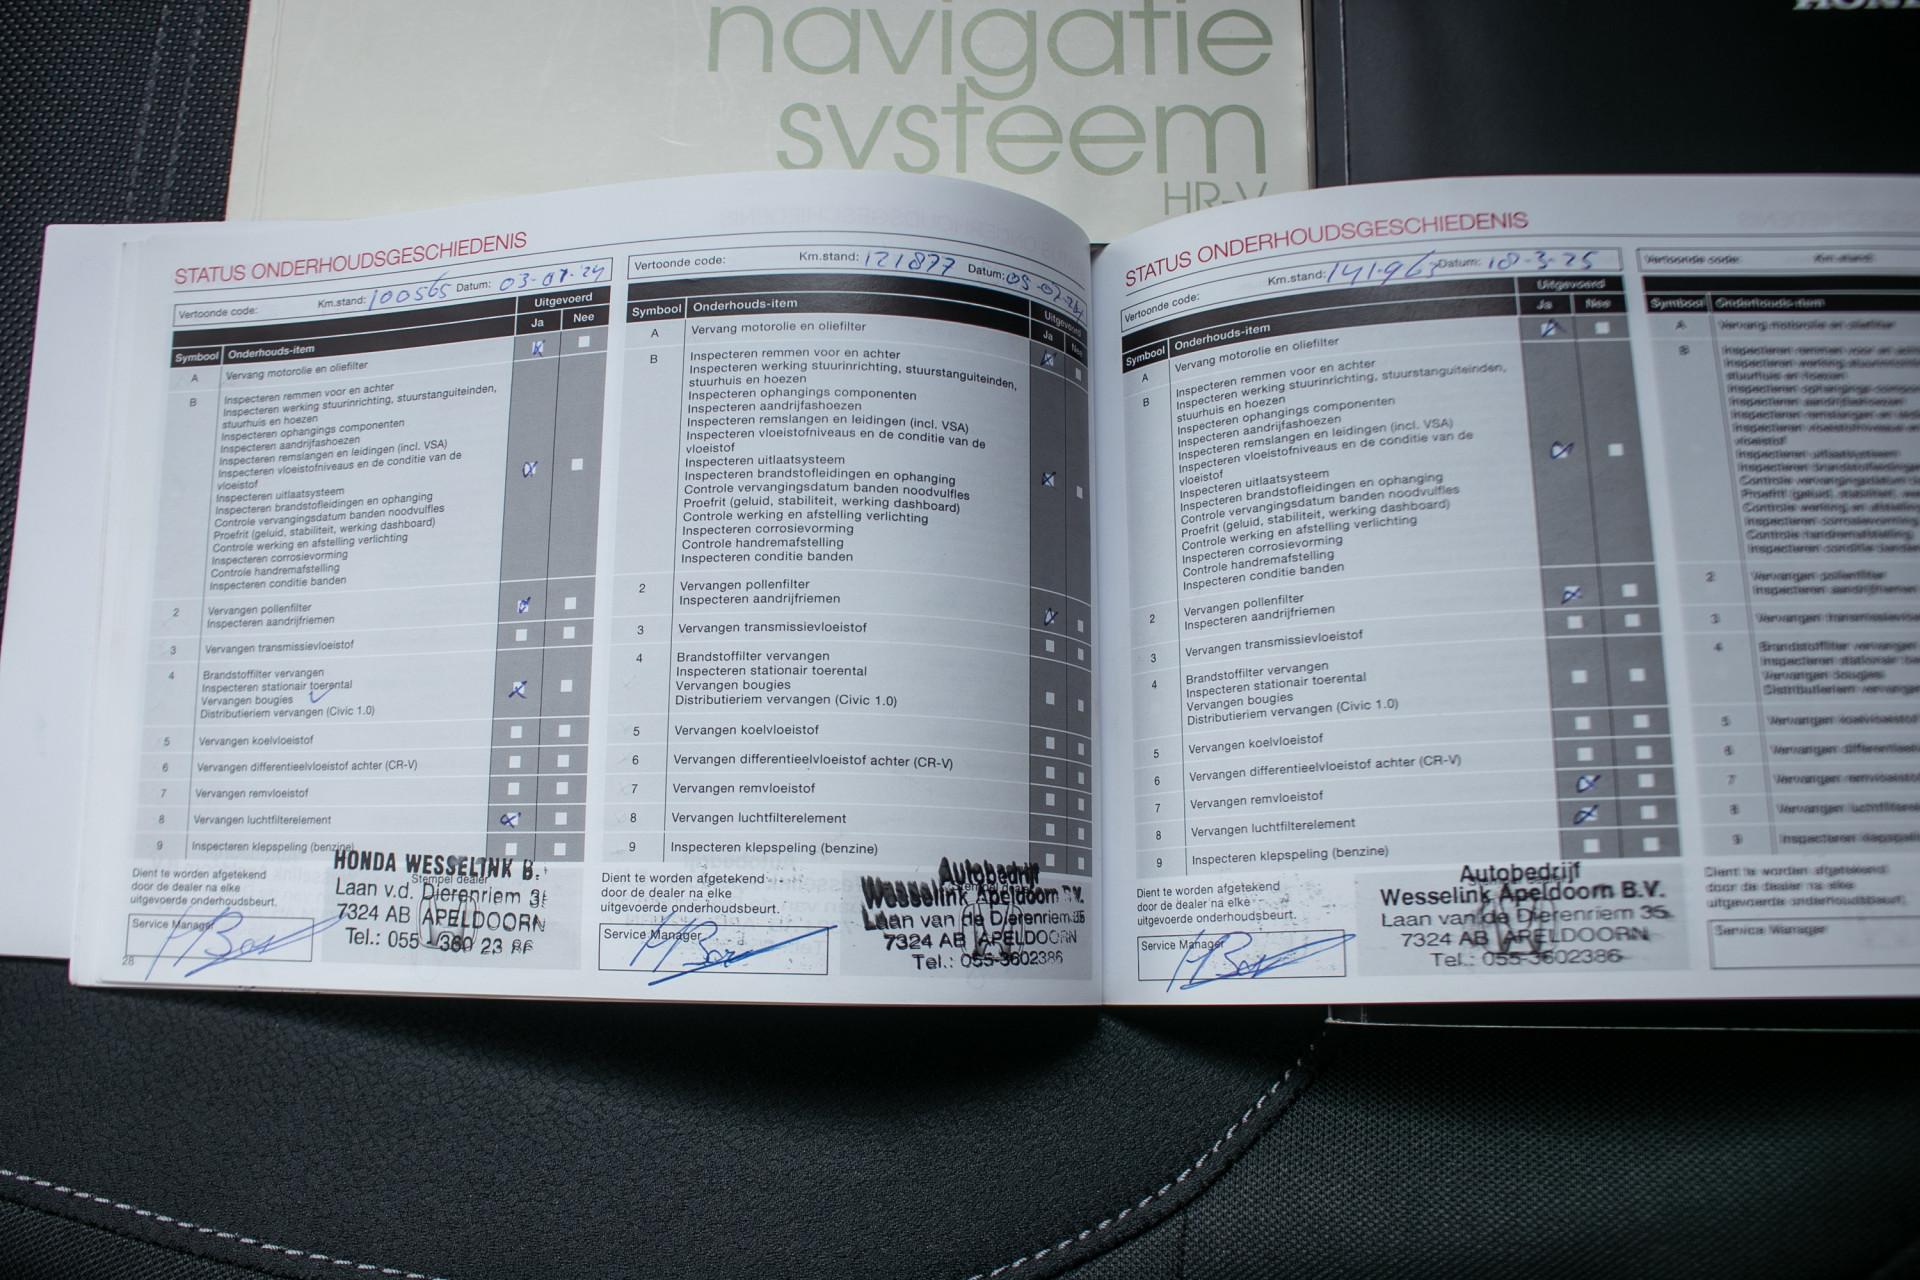 navigatie
systeem
HR-V
STATUS ONDERHOUDSGESCHIEDENIS
Vertoonde code: Km.stand: 100565 Datum: 03-07-24
Uitgevoerd
Symbool Onderhouds-item Ja Nee
A Vervang motorolie en oliefilter
B Inspecteren remmen voor en achter
Inspecteren werking stuurinrichting, stuurstanguiteinden,
stuurhuis en hoezen
Inspecteren ophangings componenten
Inspecteren aandrijfashoezen
Inspecteren remslangen en leidingen (incl. VSA)
Inspecteren vloeistofniveaus en de conditie van de
vloeistof
Inspecteren uitlaatsysteem
Inspecteren brandstofleidingen en ophanging
Controle vervangingsdatum banden noodvulfles
Proefrit (geluid, stabiliteit, werking dashboard)
Controle werking en afstelling verlichting
Inspecteren corrosievorming
Controle handremafstelling
Inspecteren conditie banden
2 Vervangen pollenfilter
Inspecteren aandrijfriemen
3 Vervangen transmissievloeistof
4 Brandstoffilter vervangen
Inspecteren stationair toerental
Vervangen bougies
Distributieriem vervangen (Civic 1.0)
5 Vervangen koelvloeistof
6 Vervangen differentieelvloeistof achter (CR-V)
7 Vervangen remvloeistof
8 Vervangen luchtfilterelement
9 Inspecteren klepspeling (benzine)
Dient te worden afgetekend
door de dealer na elke
uitgevoerde onderhoudsbeurt.
Service Manager
Stempel dealer
HONDA WESSELINK B.
Laan v.d. Dierenriem
7324 AB APELDOORN
Tel.: 055 - 360 23 86
28
Vertoonde code: Km.stand: 121877 Datum:
Symbool Onderhouds-item Uitgevoerd
Ja Nee
A Vervang motorolie en oliefilter
B Inspecteren remmen voor en achter
Inspecteren werking stuurinrichting, stuurstanguiteinden,
stuurhuis en hoezen
Inspecteren ophangings componenten
Inspecteren aandrijfashoezen
Inspecteren remslangen en leidingen (incl. VSA)
Inspecteren vloeistofniveaus en de conditie van de
vloeistof
Inspecteren uitlaatsysteem
Inspecteren brandstofleidingen en ophanging
Controle vervangingsdatum banden noodvulfles
Proefrit (geluid, stabiliteit, werking dashboard)
Controle werking en afstelling verlichting
Inspecteren corrosievorming
Controle handremafstelling
Inspecteren conditie banden
2 Vervangen pollenfilter
Inspecteren aandrijfriemen
3 Vervangen transmissievloeistof
4 Brandstoffilter vervangen
Inspecteren stationair toerental
Vervangen bougies
Distributieriem vervangen (Civic 1.0)
5 Vervangen koelvloeistof
6 Vervangen differentieelvloeistof achter (CR-V)
7 Vervangen remvloeistof
8 Vervangen luchtfilterelement
9 Inspecteren klepspeling (benzine)
Dient te worden afgetekend
door de dealer na elke
uitgevoerde onderhoudsbeurt.
Service Manager
Autobedrijf
Wesselink Apeldoorn B.V.
Laan van de Dierenriem 35
7324 AB APELDOORN
Tel.: 055-3602386
STATUS ONDERHOUDSGESCHIEDENIS
Vertoonde code: Km.stand: 141.963 Datum: 18-3-25
Uitgevoerd
Symbool Onderhouds-item Ja Nee
A Vervang motorolie en oliefilter
B Inspecteren remmen voor en achter
Inspecteren werking stuurinrichting, stuurstanguiteinden,
stuurhuis en hoezen
Inspecteren ophangings componenten
Inspecteren aandrijfashoezen
Inspecteren remslangen en leidingen (incl. VSA)
Inspecteren vloeistofniveaus en de conditie van de
vloeistof
Inspecteren uitlaatsysteem
Inspecteren brandstofleidingen en ophanging
Controle vervangingsdatum banden noodvulfles
Proefrit (geluid, stabiliteit, werking dashboard)
Controle werking en afstelling verlichting
Inspecteren corrosievorming
Controle handremafstelling
Inspecteren conditie banden
2 Vervangen pollenfilter
Inspecteren aandrijfriemen
3 Vervangen transmissievloeistof
4 Brandstoffilter vervangen
Inspecteren stationair toerental
Vervangen bougies
Distributieriem vervangen (Civic 1.0)
5 Vervangen koelvloeistof
6 Vervangen differentieelvloeistof achter (CR-V)
7 Vervangen remvloeistof
8 Vervangen luchtfilterelement
9 Inspecteren klepspeling (benzine)
Dient te worden afgetekend
door de dealer na elke
uitgevoerde onderhoudsbeurt.
Service Manager
Autobedrijf
Wesselink Apeldoorn B.V.
Laan van de Dierenriem 35
7324 AB APELDOORN
Tel.: 055-3602386
Vertoonde code: Km.stand:
Symbool Onderhouds-item
A Vervang motorolie en oliefilter
2 Vervangen pollenfilter
Inspecteren aandrijfriemen
Dient te worden afgetekend
door de dealer na elke
uitgevoerde onderhoudsbeurt.
Service Manager